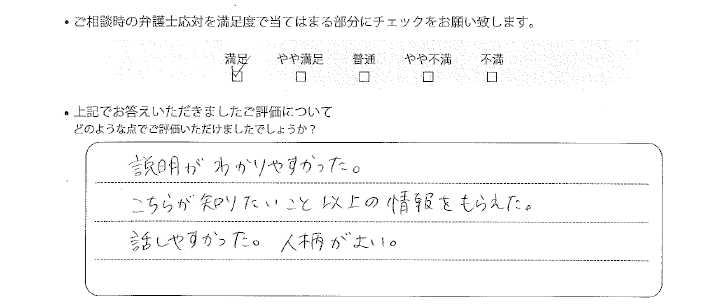 ・ご相談時の弁護士応対を満足度で当てはまる部分にチェックをお願い致します。
満足 やや満足 普通 やや不満 不満
☑ ☐ ☐ ☐ ☐
・上記でお答えいただきましたご評価について
どのような点でご評価いただけましたでしょうか？
説明がわかりやすかった。
こちらが知りたいこと以上の情報をもらえた。
話しやすかった。人柄がよい。